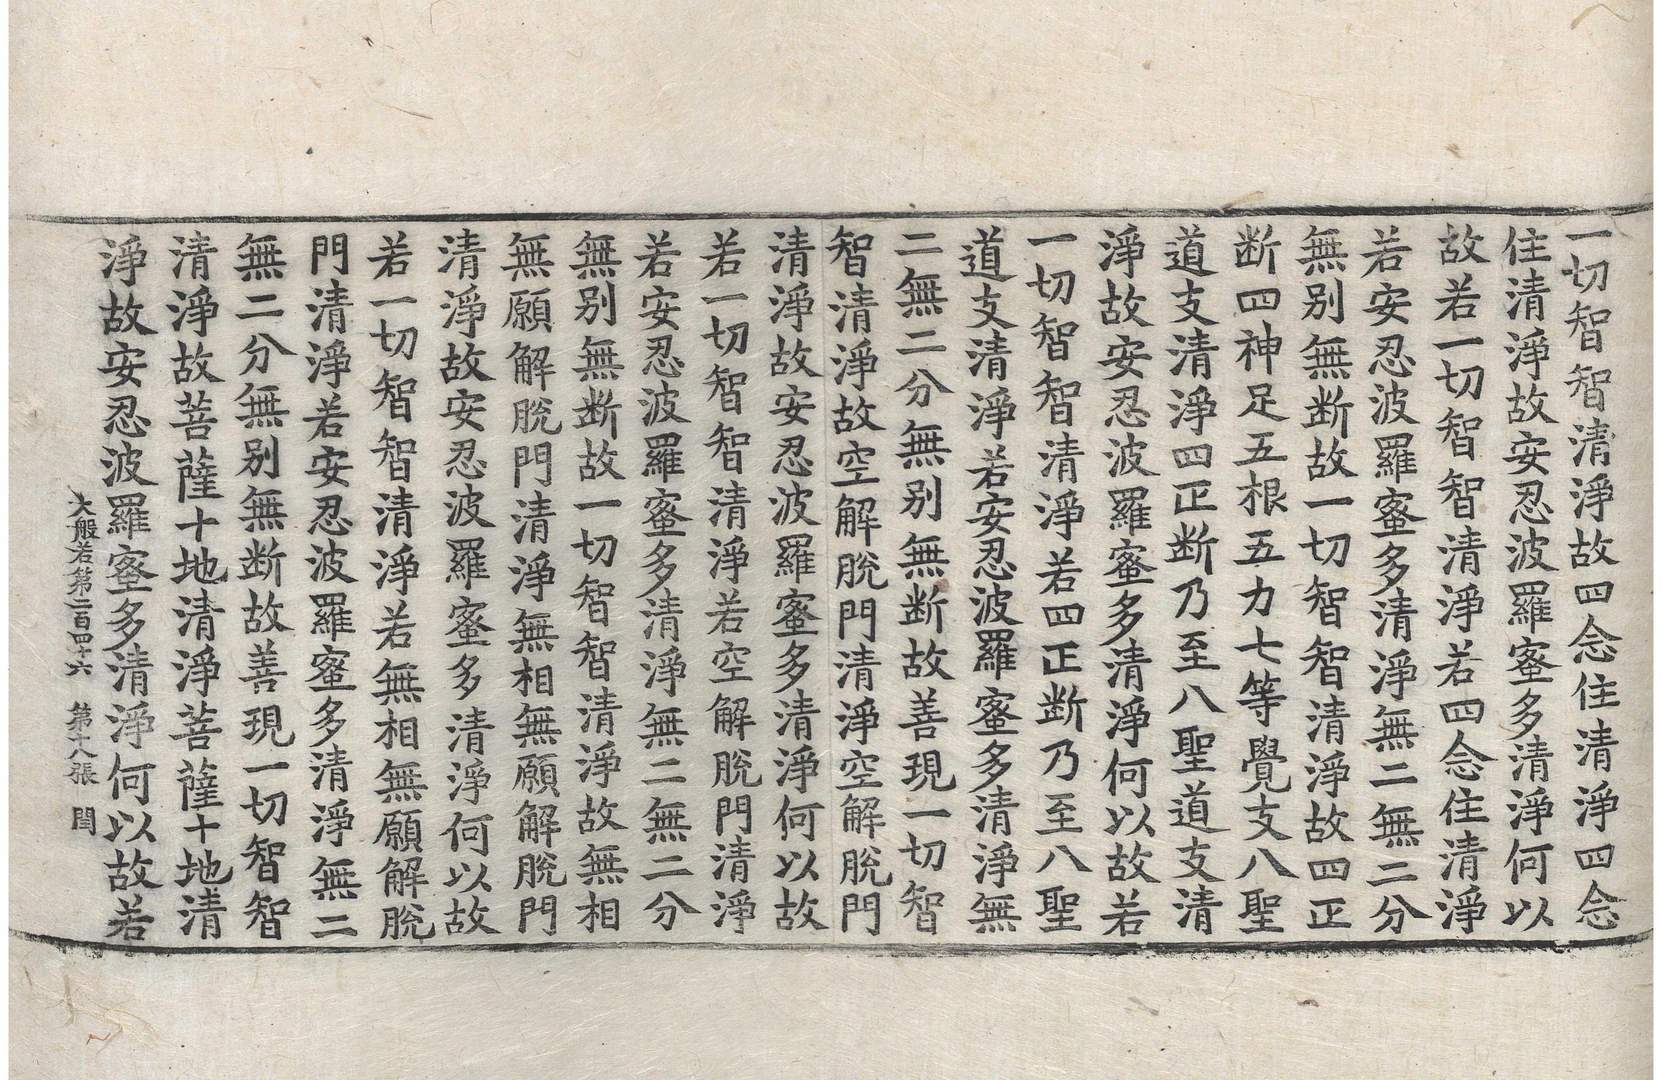 一切智智清淨故四念住清淨四念
住清淨故安忍波羅蜜多清淨何以
故若一切智智清淨若四念住清淨
若安忍波羅蜜多清淨無二無二分
無別無斷故一切智智清淨故四正
断四神足五根五力七等覺支八聖
道支清淨四正断乃至八聖道支清
淨故安忍波羅蜜多清淨何以故若
一切智智清淨若四正断乃至八聖
道支清淨若安忍波羅蜜多清淨無
二無二分無别無断故善現一切智
智清淨故空解脫門清淨空解脫門
清淨故安忍波羅蜜多清淨何以故
若一切智智清淨若空解脫門清淨
若安忍波羅蜜多清淨無二無二分
無别無断故一切智智清淨故無相
無願解脫門清淨無相無願解脫門
清淨故安忍波羅蜜多清淨何以故
若一切智智清淨若無相無願解脫
門清淨若安忍波羅蜜多清淨無二
無二分無别無断故善現一切智智
清淨故菩薩十地清淨菩薩十地清
淨故安忍波羅蜜多清淨何以故若
大般若第二百四十六　第十八張　閏